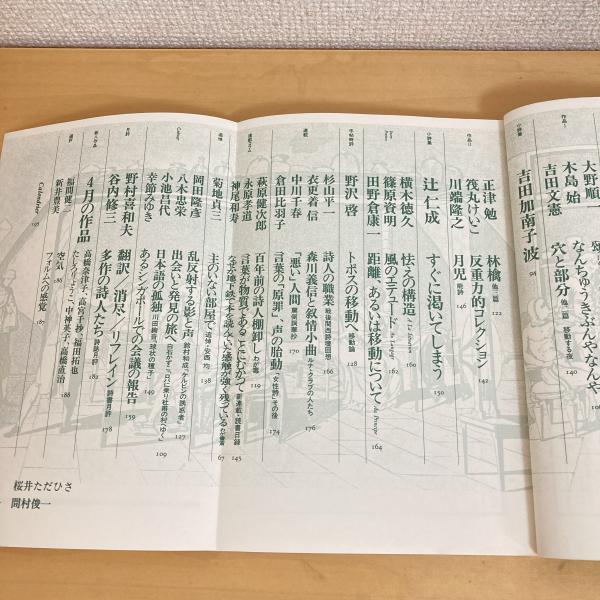 大野順一
木島 始 なんちゅうぎぶんやなんや
吉田文憲 穴と部分 他二篇 移動する夜 140
作品 I
小詩集 吉田加南子 波 94
正津 勉 林檎 他一篇 122
筏丸けいこ 反重力的コレクション 142
川端隆之 月児 戯詩 146
作品 II
小詩集 辻 仁成 すぐに渇いてしまう 150
横木徳久 怯えの構造 160
篠原資明 風のエチュード 162
田野倉康一 距離 あるいは移動について 164
手帖時評 野沢 啓 トポスの移動へ 移動論 156
連載 杉山平一 詩人の職業 戦後関西詩壇回想 166
衣更着信 森川義信と叙情小曲 ルナ・クラブの人たち 176
中川千春 「悪い」人間 170
倉田比羽子 言葉の「原罪」、声の胎動 「女性詩」その後 174
連載コラム 萩原健次郎 百年前の詩人棚卸し 119
永原孝道 言葉が物質であることにむかって 新連載・読書日録 145
神尾和寿 なぜか地下鉄で本を読んでいた感触が強く残っている 67
追悼 菊地貞三 主のいない部屋で 追悼・安西均 138
岡田隆彦 乱反射する影と声 鈴村和成『ケルビンの誘惑者』 127
八木忠栄 出会いと発見の旅
小池昌代 日本語の孤独 149
幸節みゆき あるシンポジウムでの会議の報告 109
月評 野村喜和夫 翻訳／消尽／リフレイン 詩書月評 159
谷内修三 多作の詩人たち 詩誌月評 178
新人作品 4月の作品 高橋奈津子、高宮千秒、福田拓也 182
たしろりょうこ、中神英子、高橋直治 188
選評 福間健二 空気 186
新井豊美 フォルムへの感覚 187
Calendar 195
桜井ただひさ
間村俊一